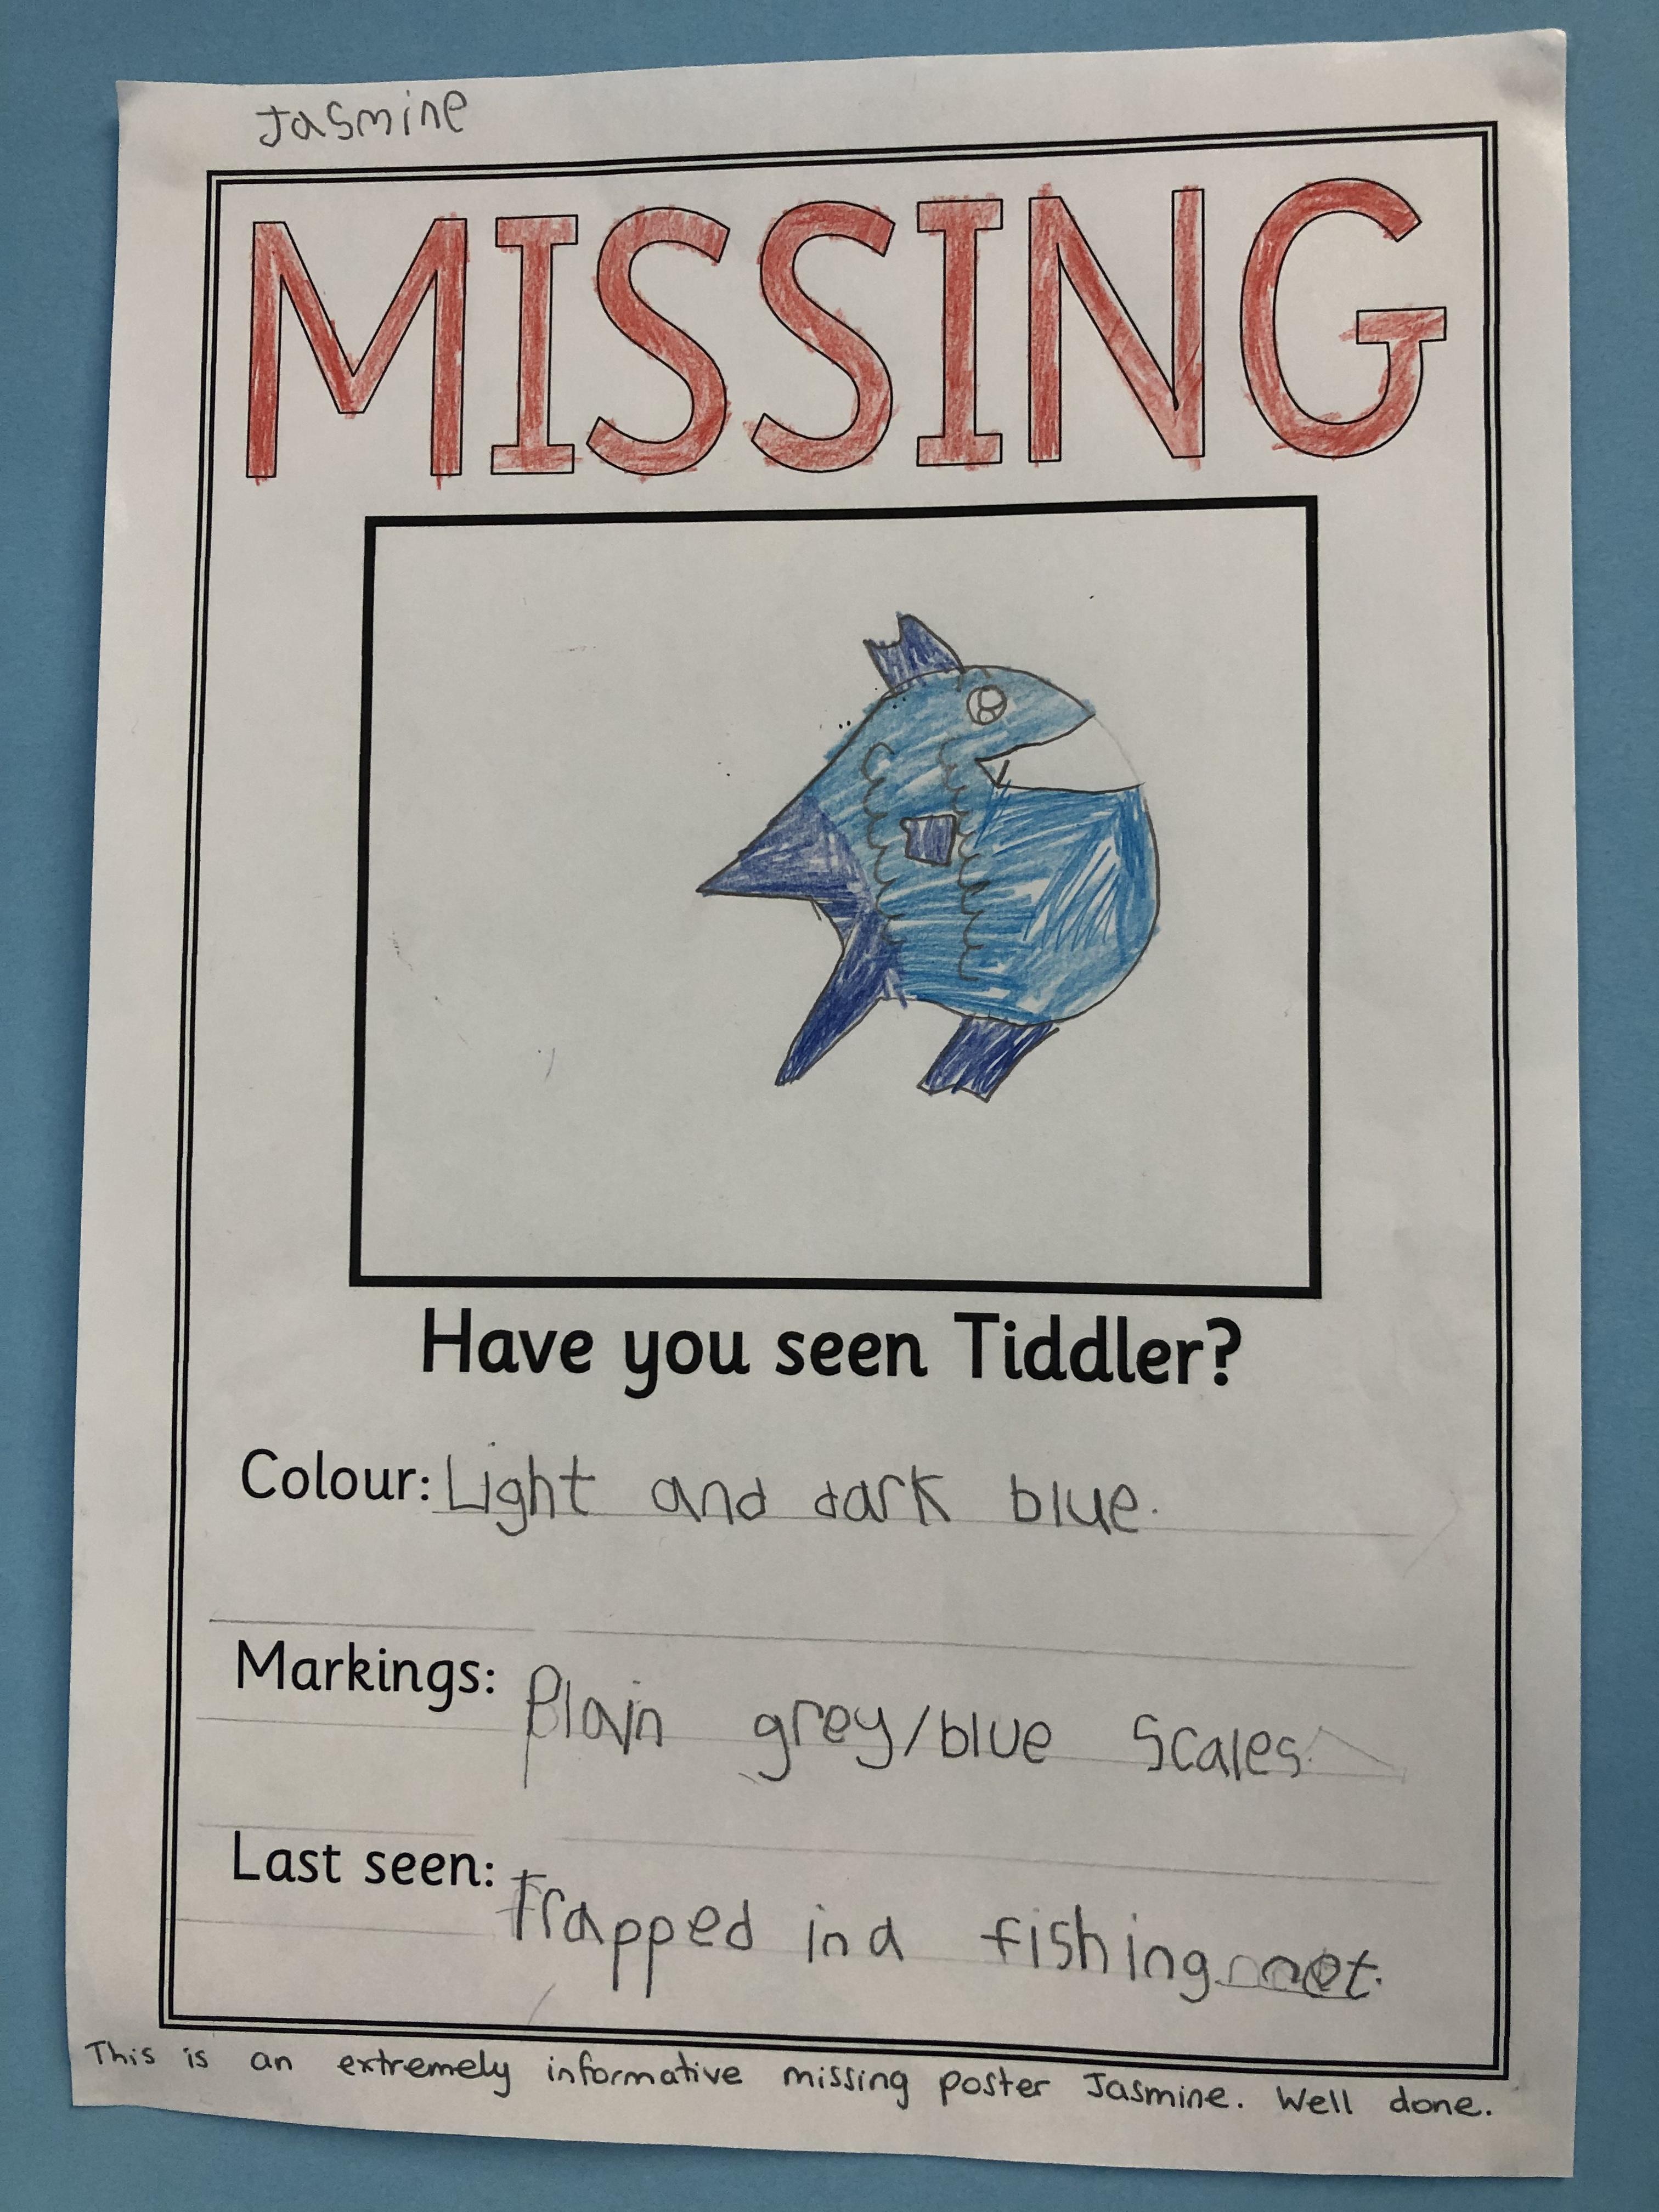 Jasmine
MISSING
Have you seen Tiddler?
Colour: Light and dark blue.
Markings: Plain grey/blue scales.
Last seen: Trapped in a fishing net.
This is an extremely informative missing poster Jasmine. Well done.